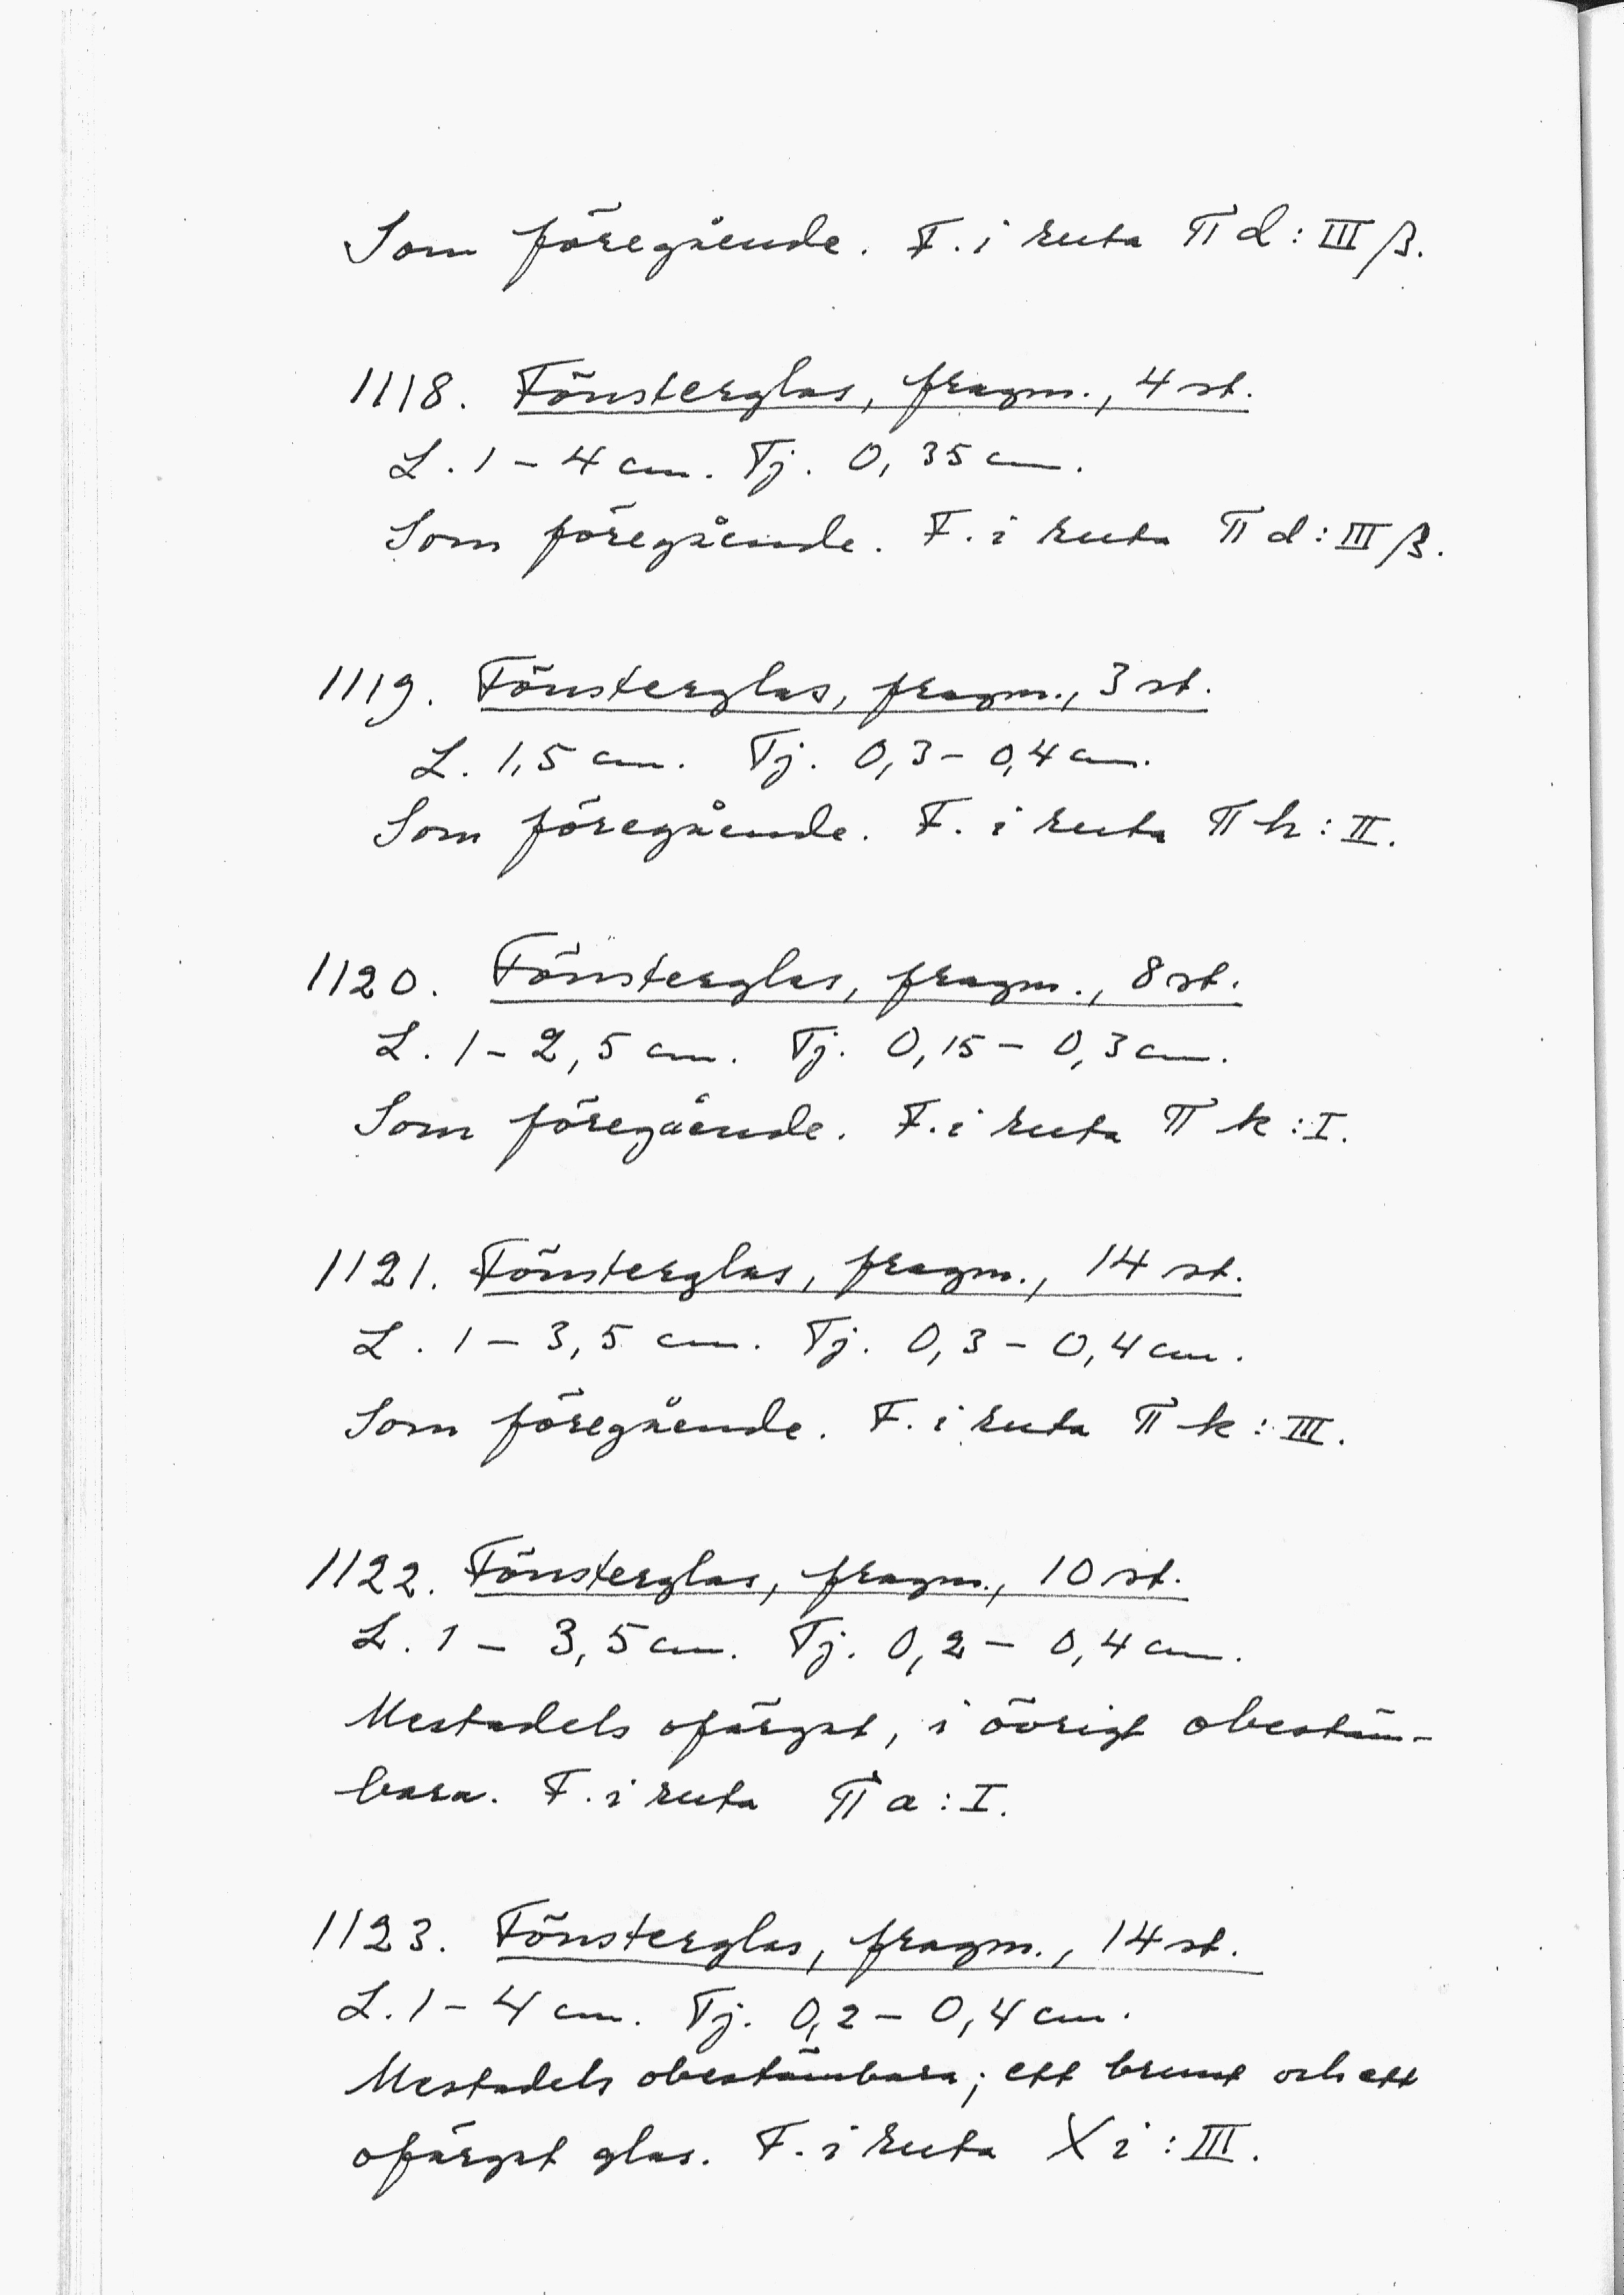 Som föregående. F. i ruta π d : III β.
1118. Fönsterglas, fragm., 4 st.
L. 1 - 4 cm. Tj. 0,35 cm.
Som föregående. F. i ruta π d : III β.
1119. Fönsterglas, fragm., 3 st.
L. 1,5 cm. Tj. 0,3 - 0,4 cm.
Som föregående. F. i ruta π h : II.
1120. Fönsterglas, fragm., 8 st.
L. 1 - 2,5 cm. Tj. 0,15 - 0,3 cm.
Som föregående. F. i ruta π k : I.
1121. Fönsterglas, fragm., 14 st.
L. 1 - 3,5 cm. Tj. 0,3 - 0,4 cm.
Som föregående. F. i ruta π k : III.
1122. Fönsterglas, fragm., 10 st.
L. 1 - 3,5 cm. Tj. 0,2 - 0,4 cm.
Mestadels ofärgat, i övrigt obestäm-
bara. F. i ruta π a : I.
1123. Fönsterglas, fragm., 14 st.
L. 1 - 4 cm. Tj. 0,2 - 0,4 cm.
Mestadels obestämbara; ett brunt och ett
ofärgat glas. F. i ruta X i : III.